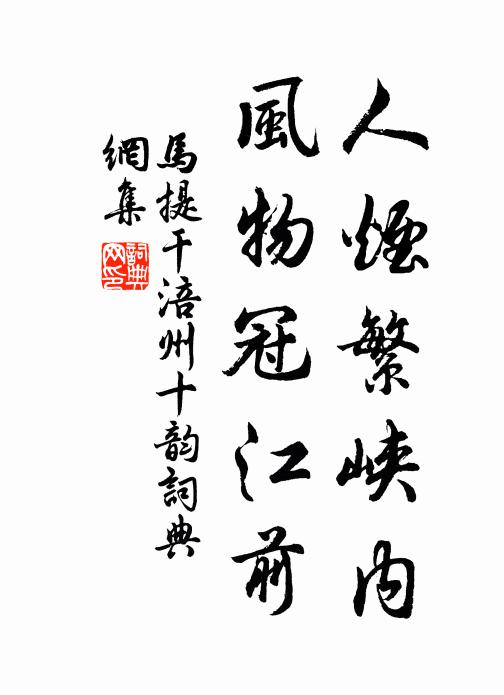 人煙繁峽内
風物冠江前
馬提干涪州十韵詞典
網集
詞典网印